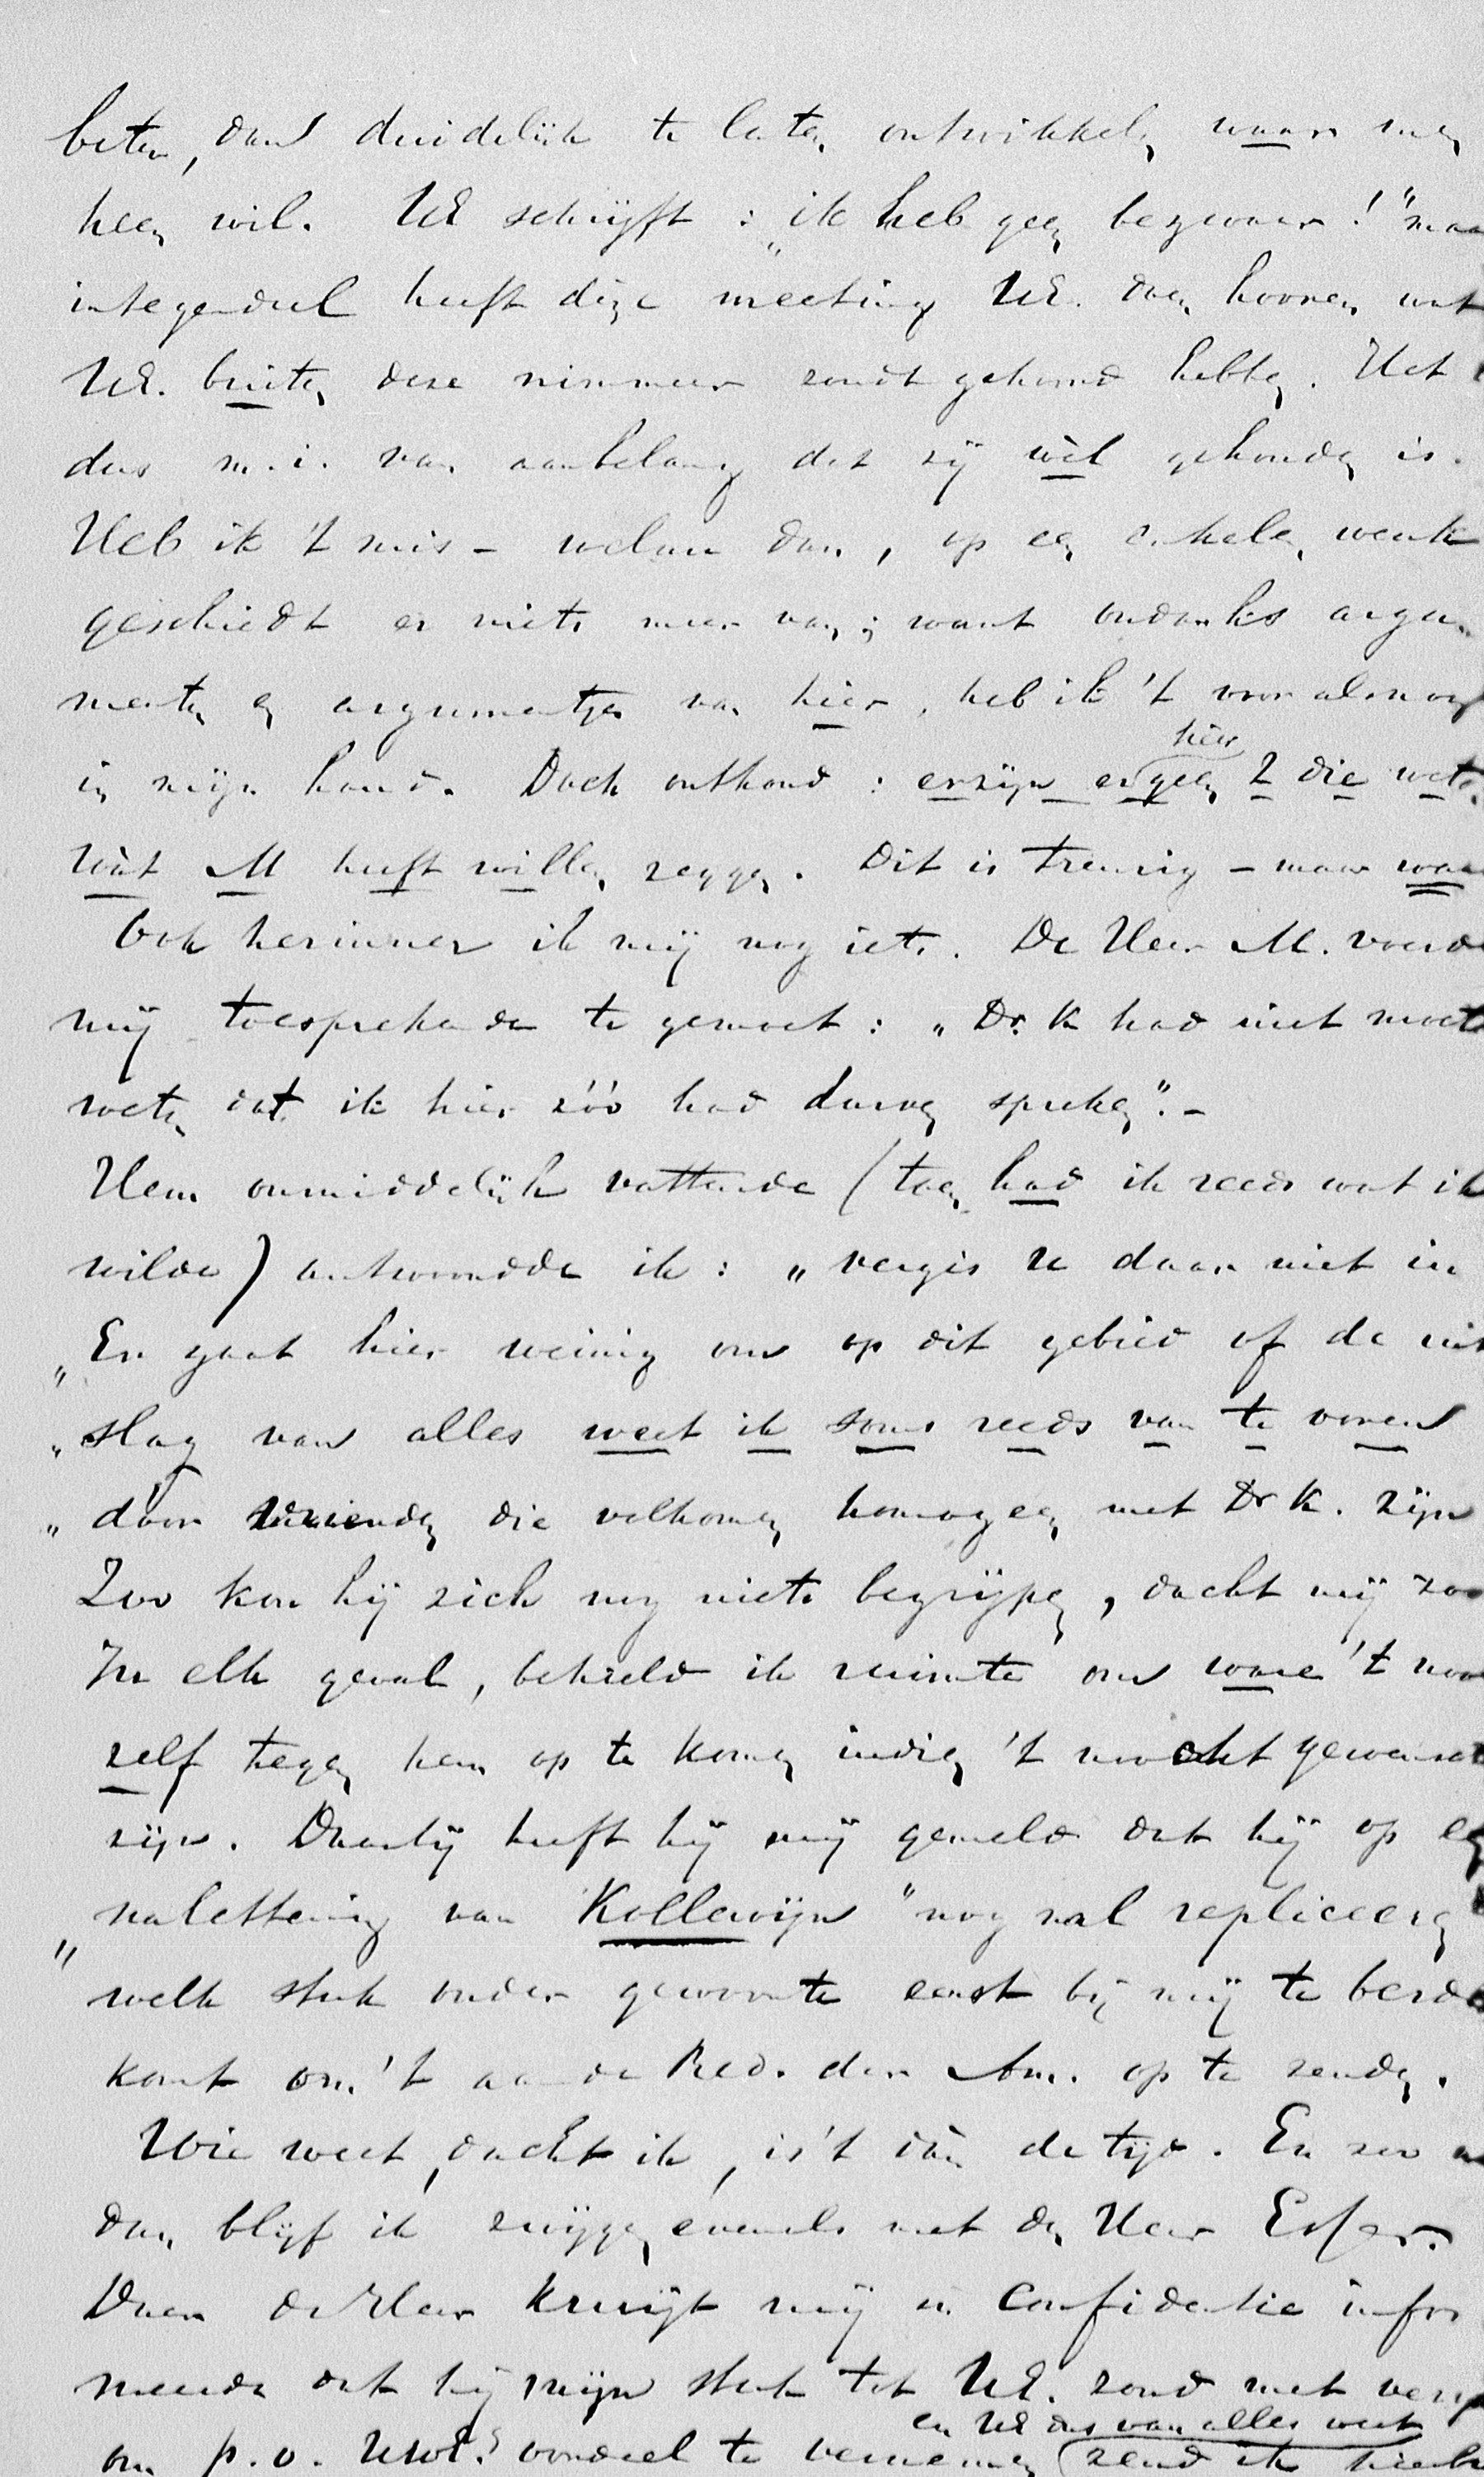 beter, dan duidelijk te laten ontwikkelen waar men
heen wil. UE schrijft: „ik heb geen bezwaar!" maa
integendeel heeft deze meeting UE. doen hooren wat
UE. buiten deze nimmer zoudt gehoord hebben. Het
dus m.i. van aanbelang dat zij wèl gehouden is.
Heb ik 't mis – welaan dan, op een enkelen wenk
geschiedt er niets meer van; want ondanks argu-
menten en argumentjes van hier, heb ik 't vooralsnog
in mijn hand. Doch onthoud: er zijn er hier geen 2 die weten
wàt M heeft willen zeggen. Dit is treurig – maar waa
Ook herinner ik mij nog iets. De Heer M. voerde
mij toesprekende te gemoet: „Dr. K had niet moet
weten dat ik hier zóó had durven spreken". –
Hem onmiddelijk vattende (toen had ik reeds wat ik
wilde) antwoordde ik: „vergis U daar niet in
„Er gaat hier weinig om op dit gebied of de uit
„slag van alles weet ik soms reeds van te voren
„dóór vrienden die volkomen homogeen met Dr K. zijn
Zoo kon hij zich nog niets begrijpen, dacht mij zoo
In elk geval, behield ik ruimte om ware 't noo
zelf tegen hem op te komen indien 't mocht gewenscht
zijn. Daarbij heeft hij mij gemeld dat hij op een
nalettering van Kollewijn "nog zal repliceeren
„welk stuk ouder gewoonte eerst bij mij te berde
komt om 't aan de Red. der Am. op te zenden.
Wie weet, dacht ik, is 't dàn de tijd. En zoo n
dan blijf ik zwijgen evenals met den Heer Esser.
Daar de Heer Kruijt mij in Confidentie infor
meerde dat hij mijn stuk tot UE. zond met verz
en UE dus van alles weet
om p.o. UwE's oordeel te vernemen (zend ik hierb